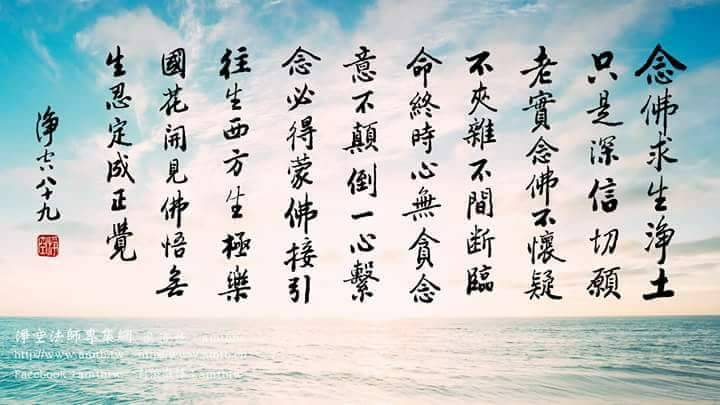 念佛求生淨土
只是深信切願
老實念佛不懷疑
不夾雜不間断臨
命終時心無貪念
意不顛倒一心繫
念必得蒙佛接引
往生西方生極樂
國花開見佛悟無
生忍定成正覺
淨空八十九
淨空法師專集網